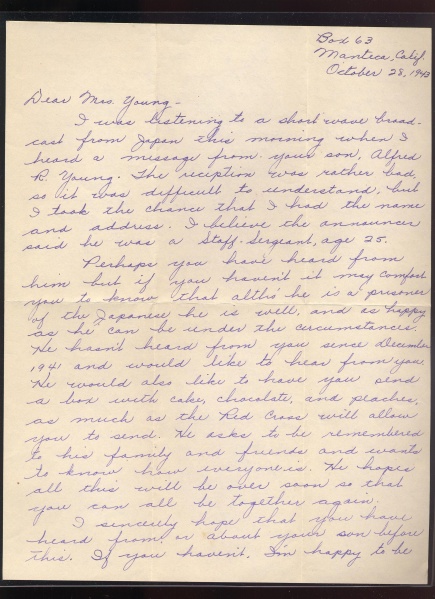 Box 63
Manteca, Calif.
October 28, 1943
Dear Mrs. Young-
I was listening to a short wave broad-
cast from Japan this morning when I
heard a message from your son, Alfred
R. Young. The reception was rather bad,
so it was difficult to understand, but
I took the chance that I had the name
and address. I believe the announcer
said he was a Staff-Sergeant, age 25.
Perhaps you have heard from
him but if you haven't it may comfort
you to know that altho' he is a prisoner
of the Japanese he is well, and as happy
as he can be under the circumstances.
He hasn't heard from you since December
1941 and would like to hear from you.
He would also like to have you send
a box with cake, chocolate, and peaches,
as much as the Red Cross will allow
you to send. He asks to be remembered
to his family and friends and wants
to know how everyone is. He hopes
all this will be over soon so that
you can all be together again.
I sincerely hope that you have
heard from or about your son before
this. If you haven't, I'm happy to be